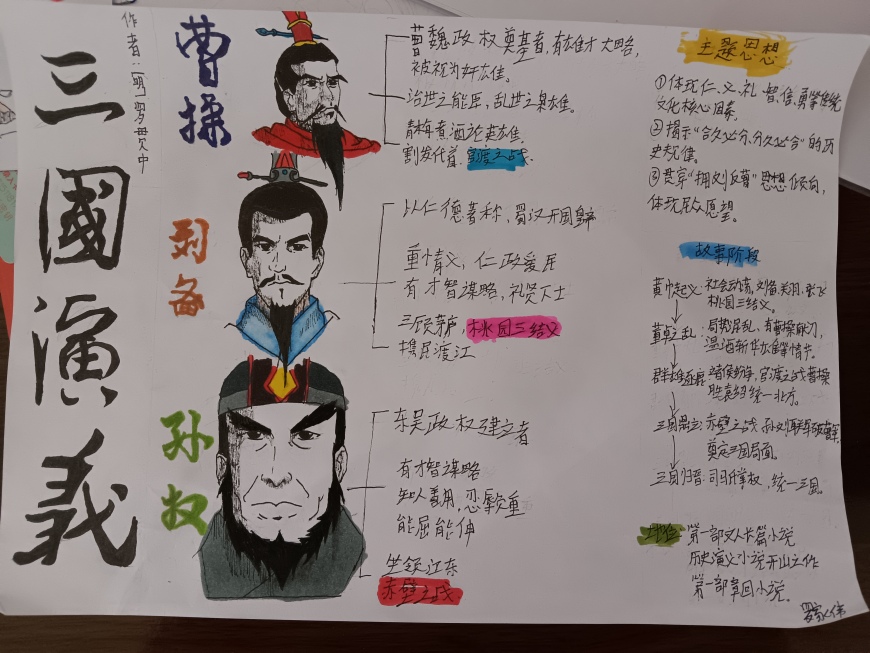 三國演義
作者：(明)罗贯中
曹操
曹魏政权奠基者，有雄才大略，
被视为奸雄。
治世之能臣，乱世之枭雄。
青梅煮酒论英雄，
割发代首，官渡之战。
刘备
以仁德著称，蜀汉开国皇帝
重情义，仁政爱民
有才智谋略，礼贤下士
三顾茅庐，桃园三结义
携民渡江
孙权
东吴政权建立者
有才智谋略
知人善用，忍辱负重
能屈能伸
坐领江东
赤壁之战
主题思想
①体现仁、义、礼、智、信、勇等传统
文化核心因素。
②揭示“合久必分，分久必合”的历
史规律。
③贯穿“拥刘反曹”思想倾向，
体现民众愿望。
故事阶段
黄巾起义：社会动荡，刘备、关羽、张飞
桃园三结义。
董卓之乱：局势混乱，有曹操献刀，
温酒斩华雄等情节。
群雄逐鹿：诸侯纷争，官渡之战曹操
胜袁绍统一北方。
三国鼎立：赤壁之战，孙刘联军破曹军，
奠定三国局面。
三国归晋：司马氏掌权，统一三国。
地位：第一部文人长篇小说
历史演义小说开山之作
第一部章回小说。